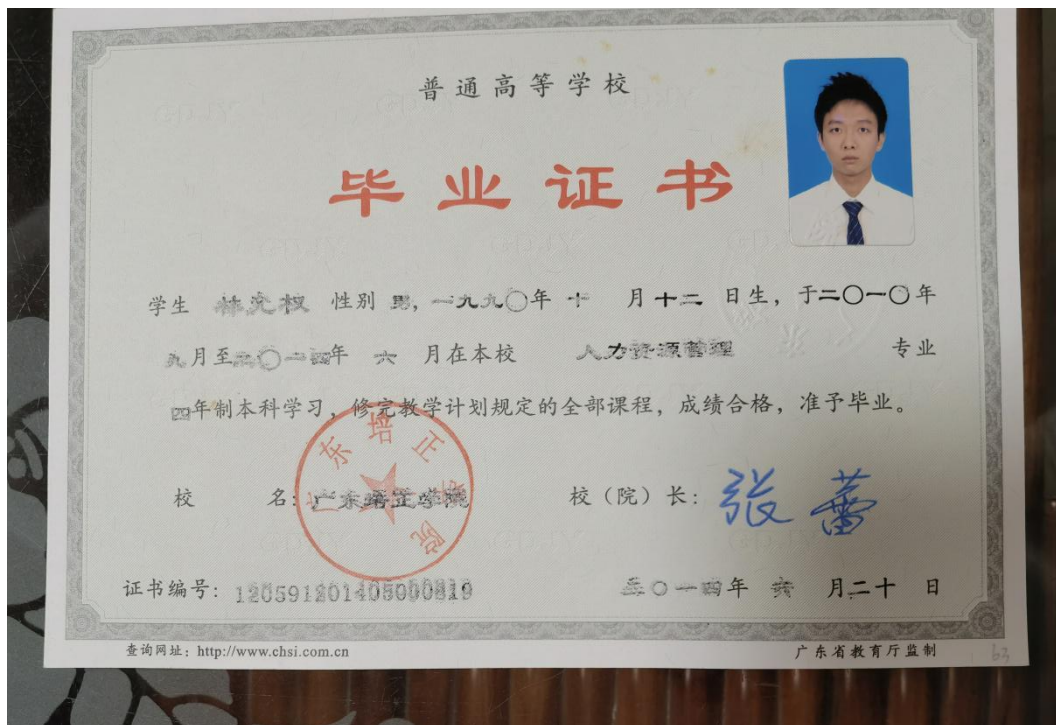 普通高等学校
毕业证书
学生 林光权 性别 男，一九九〇年 十 月十二 日生，于二〇一〇年
九月至二〇一四年 六 月在本校 人力资源管理 专业
四年制本科学习，修完教学计划规定的全部课程，成绩合格，准予毕业。
校 名：广东培正学院 校（院）长：张蕾
广东培正学院
证书编号：120591201405000819 二〇一四年 六 月二十 日
查询网址：http://www.chsi.com.cn 广东省教育厅监制
63